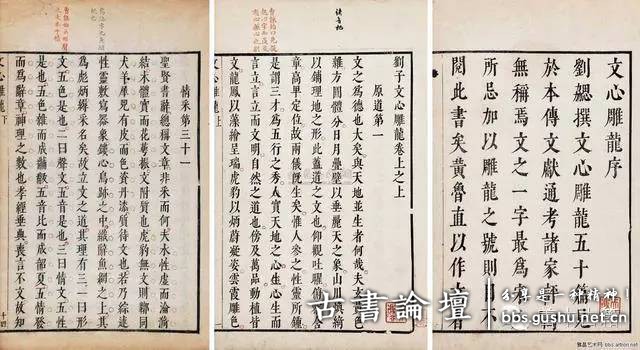 文心雕龍序
劉勰撰文心雕龍五十篇見
於本傳文獻通考諸家評
無稱焉文之一字最為
所忌加以雕龍之號則目不
閱此書矣黃魯直以作文者
劉子文心雕龍卷上之上
原道第一
文之為德也大矣與天地並生者何哉夫玄黃色
雜方圓體分日月疊璧以垂麗天之象山川煥綺
以鋪理地之形此蓋道之文也仰觀吐曜俯察含
章高卑定位故兩儀既生矣惟人參之性靈所鍾
是謂三才為五行之秀人實天地之心生心生而
言立而文明自然之道也傍及萬品動植皆
文龍鳳以藻繪呈瑞虎豹以炳蔚凝姿雲霞雕色
情采第三十一
聖賢書辭總稱文章非采而何夫水性虛而淪漪
結木體實而花萼振文附質也虎豹無文則鞹同
犬羊犀兕有皮而色資丹漆質待文也若乃綜述
性靈敷寫器象鏤心鳥跡之中織辭魚網之上其
為彪炳縟采名矣故立文之道其理有三一曰形
文五色是也二曰聲文五音是也三曰情文五性
是也五色雜而成黼黻五音比而成韶夏五情發
而為辭章神理之數也孝經垂典喪言不文故知
文心雕龍下
十四
古書論壇
bbs.gushu.net.cn
雅昌艺术网·bbs.artron.net